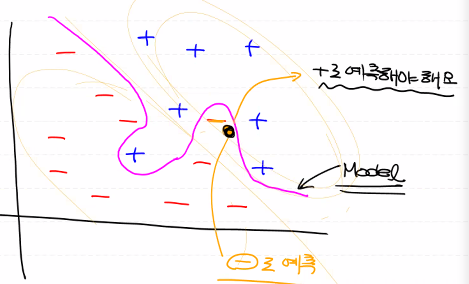 +로 예측해야 해요
Model
⊖로 예측